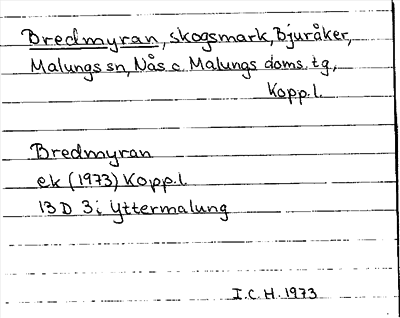 Bredmyran, skogsmark, Bjuråker,
Malungs sn, Nås o. Malungs doms. tg,
Kopp.l.
Bredmyran
ek (1973) Kopp.l
13 D 3i Yttermalung
I.C.H. 1973